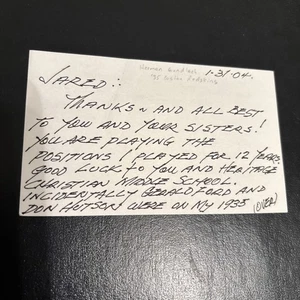 1-31-04.
JARED:
THANKS ~ AND ALL BEST
TO YOU AND YOUR SISTERS!
YOU ARE PLAYING THE
POSITIONS I PLAYED FOR 12 YEARS.
GOOD LUCK TO YOU AND HERITAGE
CHRISTIAN MIDDLE SCHOOL.
INCIDENTALLY GERALD FORD AND
DON HUTSON WERE ON MY 1935
(OVER)